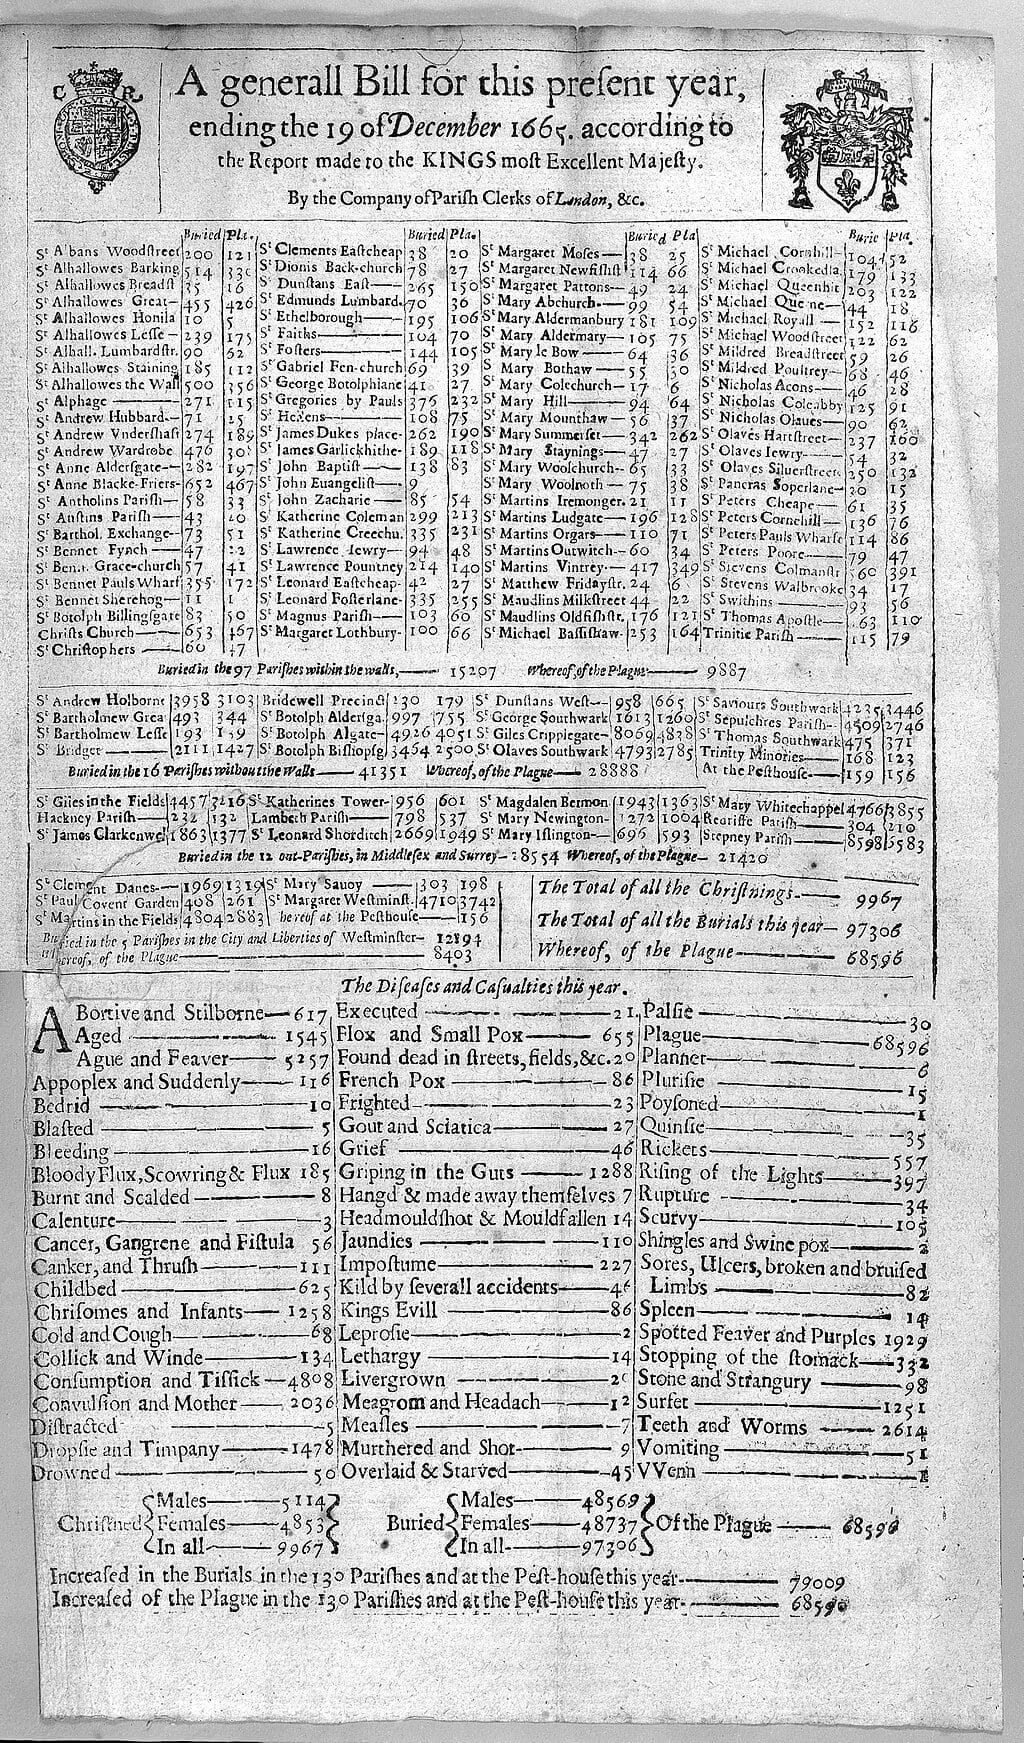 C R
A generall Bill for this preſent year,
ending the 19 of December 1665. according to
the Report made to the KINGS moſt Excellent Majeſty.
By the Company of Pariſh Clerks of London, &c.
Buried Pla.
St Albans Woodſtreet 200 121
St Alhallowes Barking 514 330
St Alhallowes Breadſt 35 16
St Alhallowes Great— 455 426
St Alhallowes Honila 10 5
St Alhallowes Leſſe— 239 175
St Alhall. Lumbardſtr. 90 62
St Alhallowes Staining 185 112
St Alhallowes the Wall 500 356
St Alphage — 271 115
St Andrew Hubbard— 71 25
St Andrew Vnderſhaft 274 189
St Andrew Wardrobe 476 308
St Anne Alderſgate— 282 197
St Anne Blacke-Friers— 652 467
St Antholins Pariſh— 58 33
St Auſtins Pariſh— 43 20
St Barthol. Exchange— 73 51
St Bennet Fynch— 47 22
St Ben.t Grace-church 57 41
St Bennet Pauls Wharf 355 172
St Bennet Sherehog— 11 1
St Botolph Billingſgate 83 50
Chriſts Church— 653 467
St Chriſtophers— 60 47
Buried Pla.
St Clements Eaſtcheap 38 20
St Dionis Back-church 78 27
St Dunſtans Eaſt— 265 150
St Edmunds Lumbard. 70 36
St Ethelborough— 195 106
St Faiths— 104 70
St Foſters— 144 105
St Gabriel Fen-church 69 39
St George Botolphlane 41 27
St Gregories by Pauls 376 232
St Hellens— 108 75
St James Dukes place— 262 190
St James Garlickhithe— 189 118
St John Baptiſt— 138 83
St John Euangeliſt— 9
St John Zacharie— 85 54
St Katherine Coleman 299 213
St Katherine Creechu. 335 231
St Lawrence Iewry— 94 48
St Lawrence Pountney 214 140
St Leonard Eaſtcheap— 42 27
St Leonard Foſterlane— 335 255
St Magnus Pariſh— 103 60
St Margaret Lothbury— 100 66
Buried Pla
St Margaret Moſes— 38 25
St Margaret Newfiſhſt 114 66
St Margaret Pattons— 49 24
St Mary Abchurch.— 99 54
St Mary Aldermanbury 181 109
St Mary Aldermary— 105 75
St Mary le Bow— 64 36
St Mary Bothaw— 55 30
St Mary Colechurch— 17 6
St Mary Hill— 94 64
St Mary Mounthaw— 56 37
St Mary Summerſet— 342 262
St Mary Staynings— 47 27
St Mary Woolchurch— 65 33
St Mary Woolnoth— 75 38
St Martins Iremonger. 21 11
St Martins Ludgate— 196 128
St Martins Orgars— 110 71
St Martins Outwitch— 60 34
St Martins Vintrey— 417 349
St Matthew Fridayſtr. 24 6
St Maudlins Milkſtreet 44 22
St Maudlins Oldfiſhſtr. 176 121
St Michael Baſſiſhaw— 253 164
Burie Pla.
St Michael Cornhill— 104 52
St Michael Crookedla. 179 133
St Michael Queenhit 203 122
St Michael Querne— 44 18
St Michael Royall— 152 116
St Michael Woodſtreet 122 62
St Mildred Breadſtreet 59 26
St Mildred Poultrey— 68 46
St Nicholas Acons— 46 28
St Nicholas Coleabby 125 91
St Nicholas Olaues— 90 62
St Olaves Hartſtreet— 237 160
St Olaves Iewry— 54 32
St Olaves Siluerſtreet 250 132
St Pancras Soperlane— 30 15
St Peters Cheape— 61 35
St Peters Cornehill— 136 76
St Peters Pauls Wharfe 114 86
St Peters Poore— 79 47
St Stevens Colmanſtr 560 391
St Stevens Walbrooke 34 17
St Swithins— 93 56
St Thomas Apoſtle— 163 110
Trinitie Pariſh— 115 79
Buried in the 97 Pariſhes within the walls,— 15207 Whereof, of the Plague— 9887
St Andrew Holborne 3958 3103
St Bartholmew Grea 493 344
St Bartholmew Leſſe 193 139
St Bridget— 2111 1427
Bridewell Precinct 230 179
St Botolph Alderſga. 997 755
St Botolph Algate— 4926 4051
St Botolph Biſhopſg. 3464 2500
St Dunſtans Weſt— 958 665
St George Southwark 1613 1260
St Giles Cripplegate— 8069 4838
St Olaves Southwark 4793 2785
St Saviours Southwark 4235 3446
St Sepulchres Pariſh— 4509 2746
St Thomas Southwark 475 371
Trinity Minories— 168 123
At the Peſthouse— 159 156
Buried in the 16 Pariſhes without the Walls— 41351 Whereof, of the Plague— 28888
St Giles in the Fields 4457 3216
Hackney Pariſh— 232 132
St James Clarkenwel 1863 1377
St Katherines Tower— 956 601
Lambeth Pariſh— 798 537
St Leonard Shorditch 2669 1949
St Magdalen Bermon 1943 1363
St Mary Newington— 1272 1004
St Mary Iſlington— 696 593
St Mary Whitechappel 4766 3855
Redriffe Pariſh— 304 210
Stepney Pariſh— 8598 6583
Buried in the 12 out-Pariſhes, in Middleſex and Surrey— 28554 Whereof, of the Plague— 21420
St Clement Danes— 1969 1319
St Paul Covent Garden 408 261
St Martins in the Fields 4804 2883
St Mary Savoy— 303 198
St Margaret Weſtminſt. 4710 3742
hereof at the Peſthouse— 156
Buried in the 5 Pariſhes in the City and Liberties of Weſtminſter— 12194
Whereof, of the Plague— 8403
The Total of all the Chriſtnings— 9967
The Total of all the Burials this year— 97306
Whereof, of the Plague— 68596
The Diſeaſes and Caſualties this year.
ABortive and Stilborne— 617
Aged— 1545
Ague and Feaver— 5257
Appoplex and Suddenly— 116
Bedrid— 10
Blaſted— 5
Bleeding— 16
Bloody Flux, Scowring & Flux 185
Burnt and Scalded— 8
Calenture— 3
Cancer, Gangrene and Fiſtula 56
Canker, and Thruſh— 111
Childbed— 625
Chriſomes and Infants— 1258
Cold and Cough— 68
Collick and Winde— 134
Conſumption and Tiſſick— 4808
Convulſion and Mother— 2036
Diſtracted— 5
Dropſie and Timpany— 1478
Drowned— 50
Executed— 21
Flox and Small Pox— 655
Found dead in ſtreets, fields, &c. 20
French Pox— 86
Frighted— 23
Gout and Sciatica— 27
Grief— 46
Griping in the Guts— 1288
Hangd & made away themſelves 7
Headmouldſhot & Mouldfallen 14
Jaundies— 110
Impoſtume— 227
Kild by ſeverall accidents— 46
Kings Evill— 86
Leproſie— 2
Lethargy— 14
Livergrown— 20
Meagrom and Headach— 12
Meaſles— 7
Murthered and Shot— 9
Overlaid & Starved— 45
Palſie— 30
Plague— 68596
Planner— 6
Pluriſie— 15
Poyſoned— 1
Quinſie— 35
Rickets— 557
Riſing of the Lights— 397
Rupture— 34
Scurvy— 105
Shingles and Swine pox— 2
Sores, Ulcers, broken and bruiſed
Limbs— 82
Spleen— 14
Spotted Feaver and Purples 1929
Stopping of the ſtomack— 332
Stone and Strangury— 98
Surfet— 1251
Teeth and Worms— 2614
Vomiting— 51
VVenn— 1
Chriſtned Males— 5114 Females— 4853 In all— 9967
Buried Males— 48569 Females— 48737 In all— 97306
Of the Plague— 68596
Increaſed in the Burials in the 130 Pariſhes and at the Peſt-houſe this year— 79009
Increaſed of the Plague in the 130 Pariſhes and at the Peſt-houſe this year— 68590